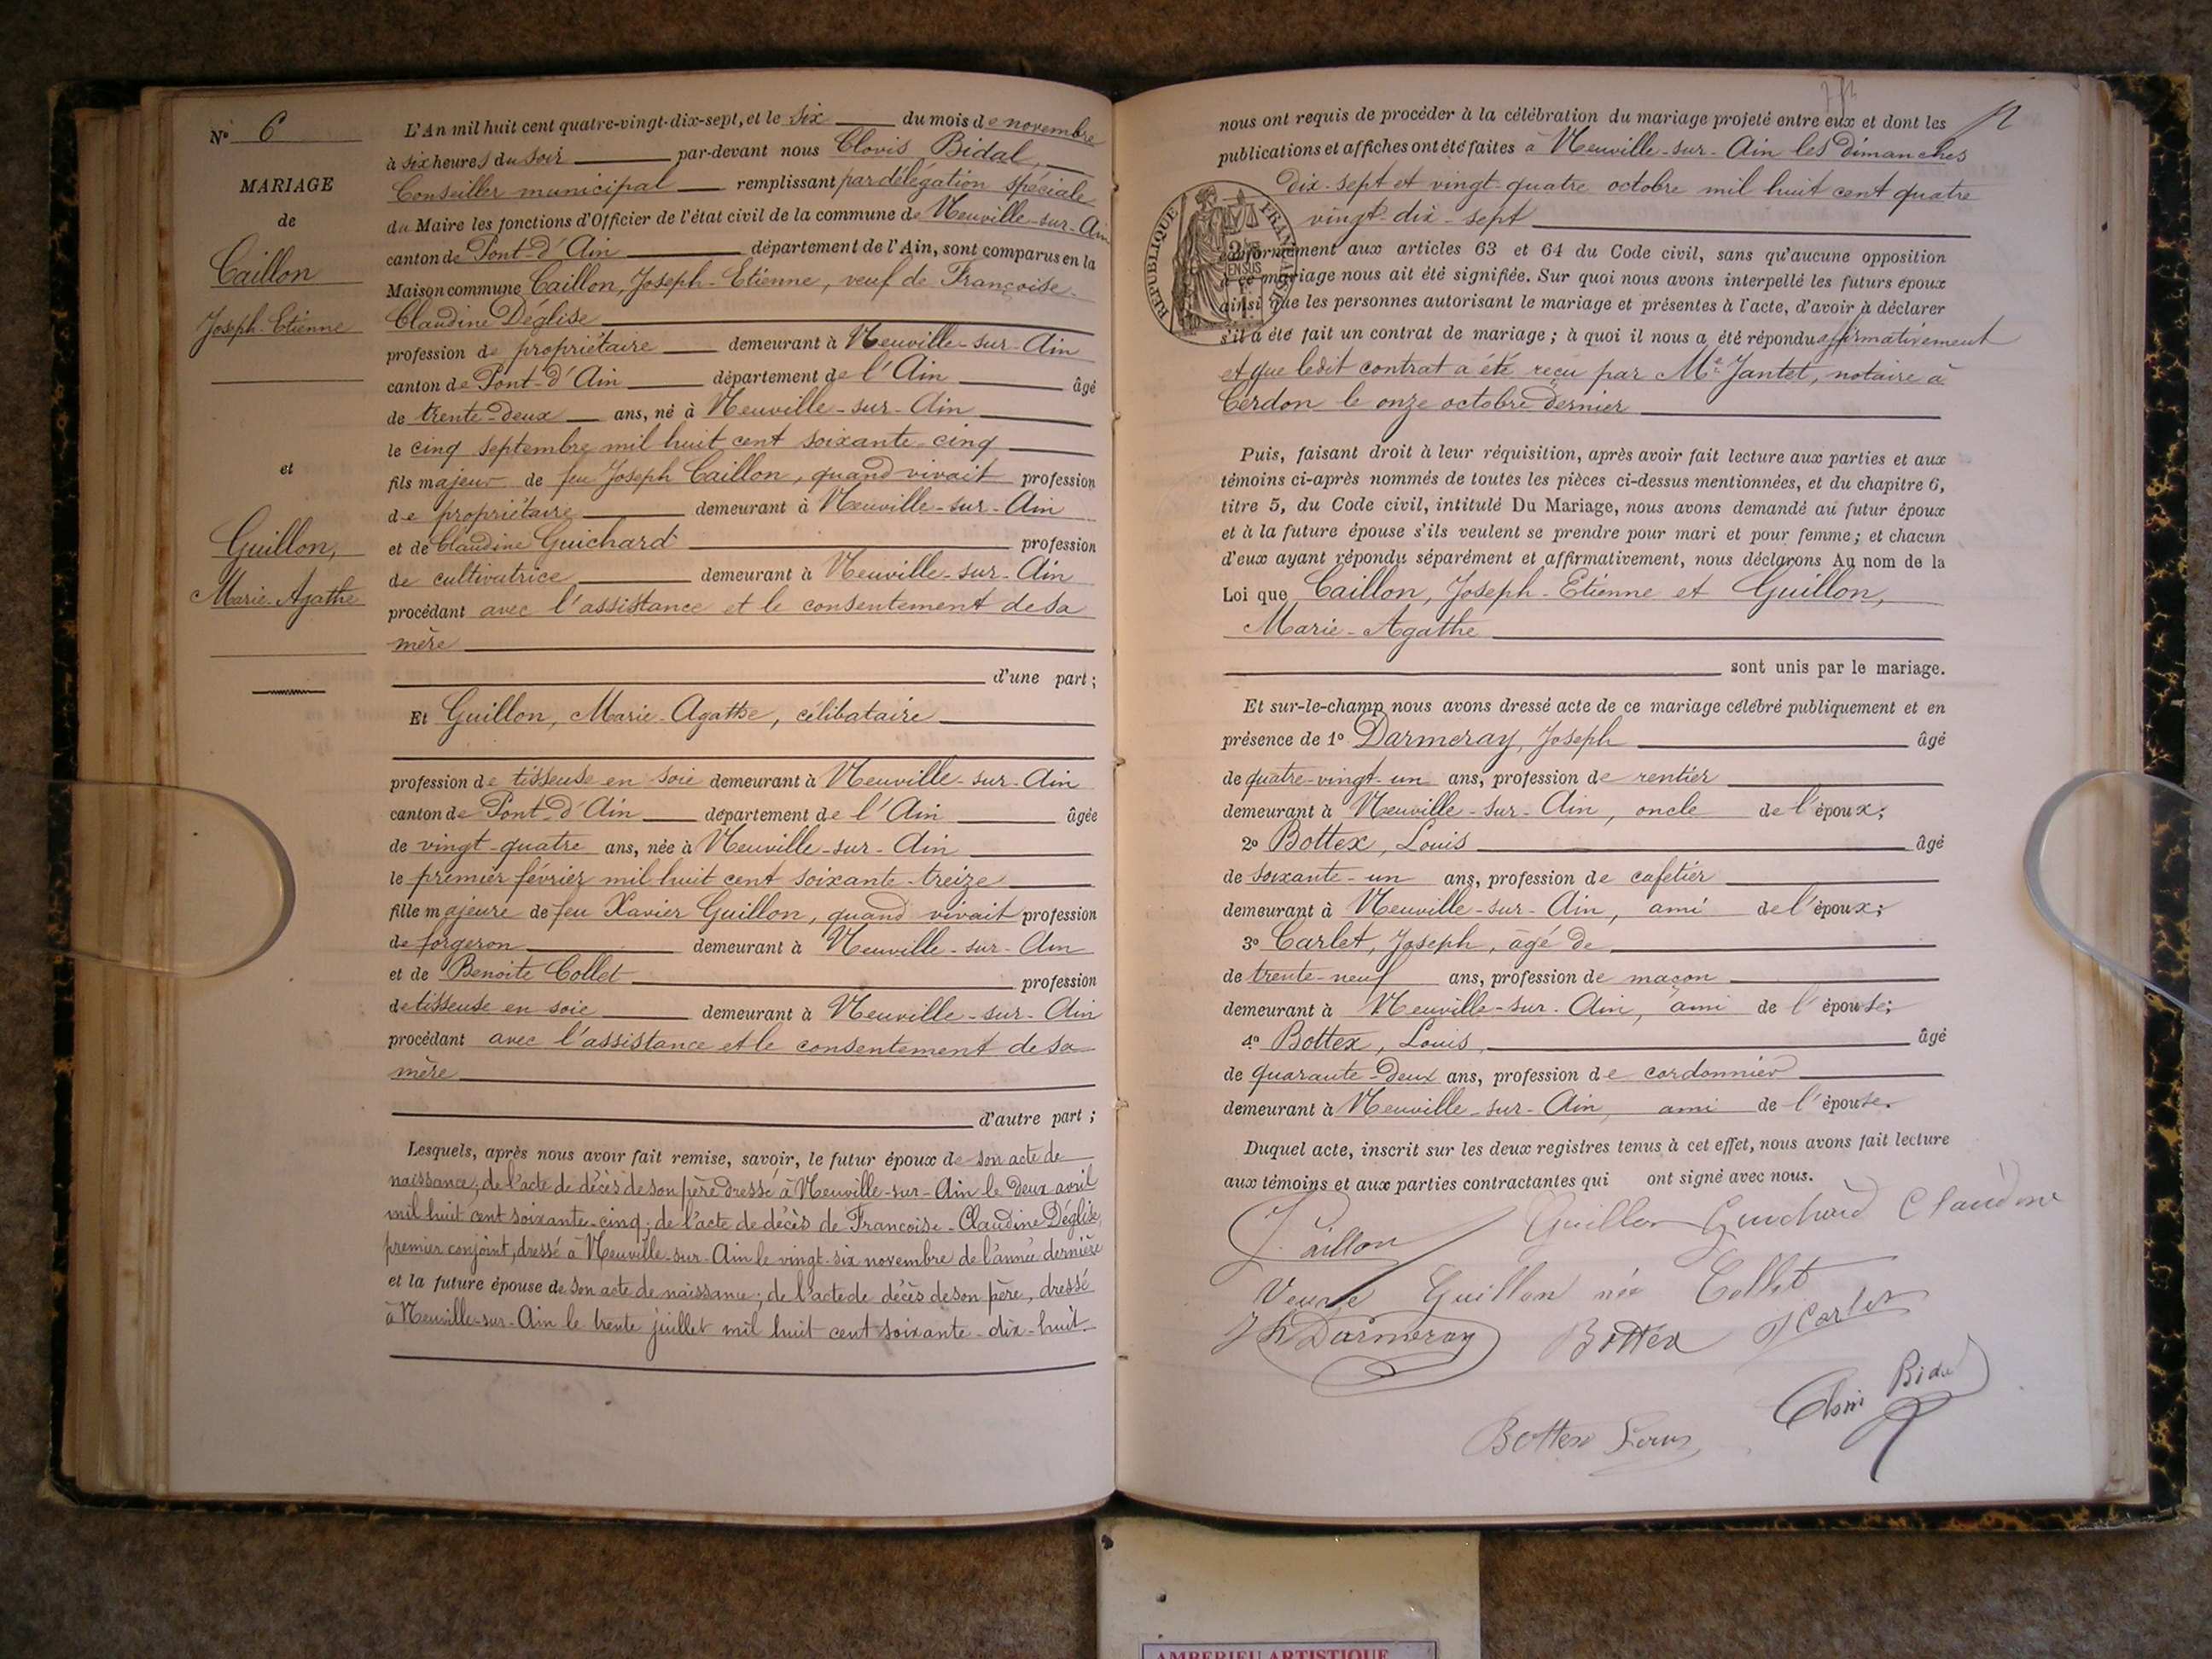 N° 6
MARIAGE
de
Caillon
Joseph-Etienne
et
Guillon,
Marie-Agathe
L'An mil huit cent quatre-vingt-dix-sept, et le six du mois de novembre
à six heures du soir par-devant nous Clovis Bidal,
Conseiller municipal remplissant par délégation spéciale
du Maire les fonctions d'Officier de l'état civil de la commune de Neuville-sur-Ain
canton de Pont-d'Ain département de l'Ain, sont comparus en la
Maison commune Caillon, Joseph-Etienne, veuf de Françoise-
Claudine Déglise
profession de propriétaire demeurant à Neuville-sur-Ain
canton de Pont-d'Ain département de l'Ain âgé
de trente-deux ans, né à Neuville-sur-Ain
le cinq septembre mil huit cent soixante-cinq
fils majeur de feu Joseph Caillon, quand vivait profession
de propriétaire demeurant à Neuville-sur-Ain
et de Claudine Guichard profession
de cultivatrice demeurant à Neuville-sur-Ain
procédant avec l'assistance et le consentement de sa
mère
d'une part ;
Et Guillon, Marie-Agathe, célibataire
profession de tisseuse en soie demeurant à Neuville-sur-Ain
canton de Pont-d'Ain département de l'Ain âgée
de vingt-quatre ans, née à Neuville-sur-Ain
le premier février mil huit cent soixante-treize
fille majeure de feu Xavier Guillon, quand vivait profession
de forgeron demeurant à Neuville-sur-Ain
et de Benoite Collet profession
de tisseuse en soie demeurant à Neuville-sur-Ain
procédant avec l'assistance et le consentement de sa
mère
d'autre part ;
Lesquels, après nous avoir fait remise, savoir, le futur époux de son acte de
naissance ; de l'acte de décès de son père dressé à Neuville-sur-Ain le deux avril
mil huit cent soixante-cinq ; de l'acte de décès de Françoise-Claudine Déglise,
premier conjoint, dressé à Neuville-sur-Ain le vingt-six novembre de l'année dernière
et la future épouse de son acte de naissance ; de l'acte de décès de son père, dressé
à Neuville-sur-Ain le trente juillet mil huit cent soixante-dix-huit.
nous ont requis de procéder à la célébration du mariage projeté entre eux et dont les
publications et affiches ont été faites à Neuville-sur-Ain les dimanches
dix-sept et vingt-quatre octobre mil huit cent quatre
vingt-dix-sept
RÉPUBLIQUE FRANÇAISE
conformément aux articles 63 et 64 du Code civil, sans qu'aucune opposition
à ce mariage nous ait été signifiée. Sur quoi nous avons interpellé les futurs époux
ainsi que les personnes autorisant le mariage et présentes à l'acte, d'avoir à déclarer
s'il a été fait un contrat de mariage ; à quoi il nous a été répondu affirmativement
et que ledit contrat a été reçu par Me Jantet, notaire à
Cerdon le onze octobre dernier
Puis, faisant droit à leur réquisition, après avoir fait lecture aux parties et aux
témoins ci-après nommés de toutes les pièces ci-dessus mentionnées, et du chapitre 6,
titre 5, du Code civil, intitulé Du Mariage, nous avons demandé au futur époux
et à la future épouse s'ils veulent se prendre pour mari et pour femme ; et chacun
d'eux ayant répondu séparément et affirmativement, nous déclarons Au nom de la
Loi que Caillon, Joseph-Etienne et Guillon,
Marie-Agathe
sont unis par le mariage.
Et sur-le-champ nous avons dressé acte de ce mariage célébré publiquement et en
présence de 1° Darmeray, Joseph âgé
de quatre-vingt-un ans, profession de rentier
demeurant à Neuville-sur-Ain, oncle de l'époux ;
2° Bottex, Louis âgé
de soixante-un ans, profession de cafetier
demeurant à Neuville-sur-Ain, ami de l'époux ;
3° Carlet, Joseph, âgé de
de trente-neuf ans, profession de maçon
demeurant à Neuville-sur-Ain, ami de l'épouse ;
4° Bottex, Louis, âgé
de quarante-deux ans, profession de cordonnier
demeurant à Neuville-sur-Ain, ami de l'épouse.
Duquel acte, inscrit sur les deux registres tenus à cet effet, nous avons fait lecture
aux témoins et aux parties contractantes qui ont signé avec nous.
J. Caillon Guillon Guichard Claudine
Veuve Guillon née Collet
Jh Darmeray Bottex J Carlet
Clovis Bidal
Bottex Louis
AMBERIEU ARTISTIQUE